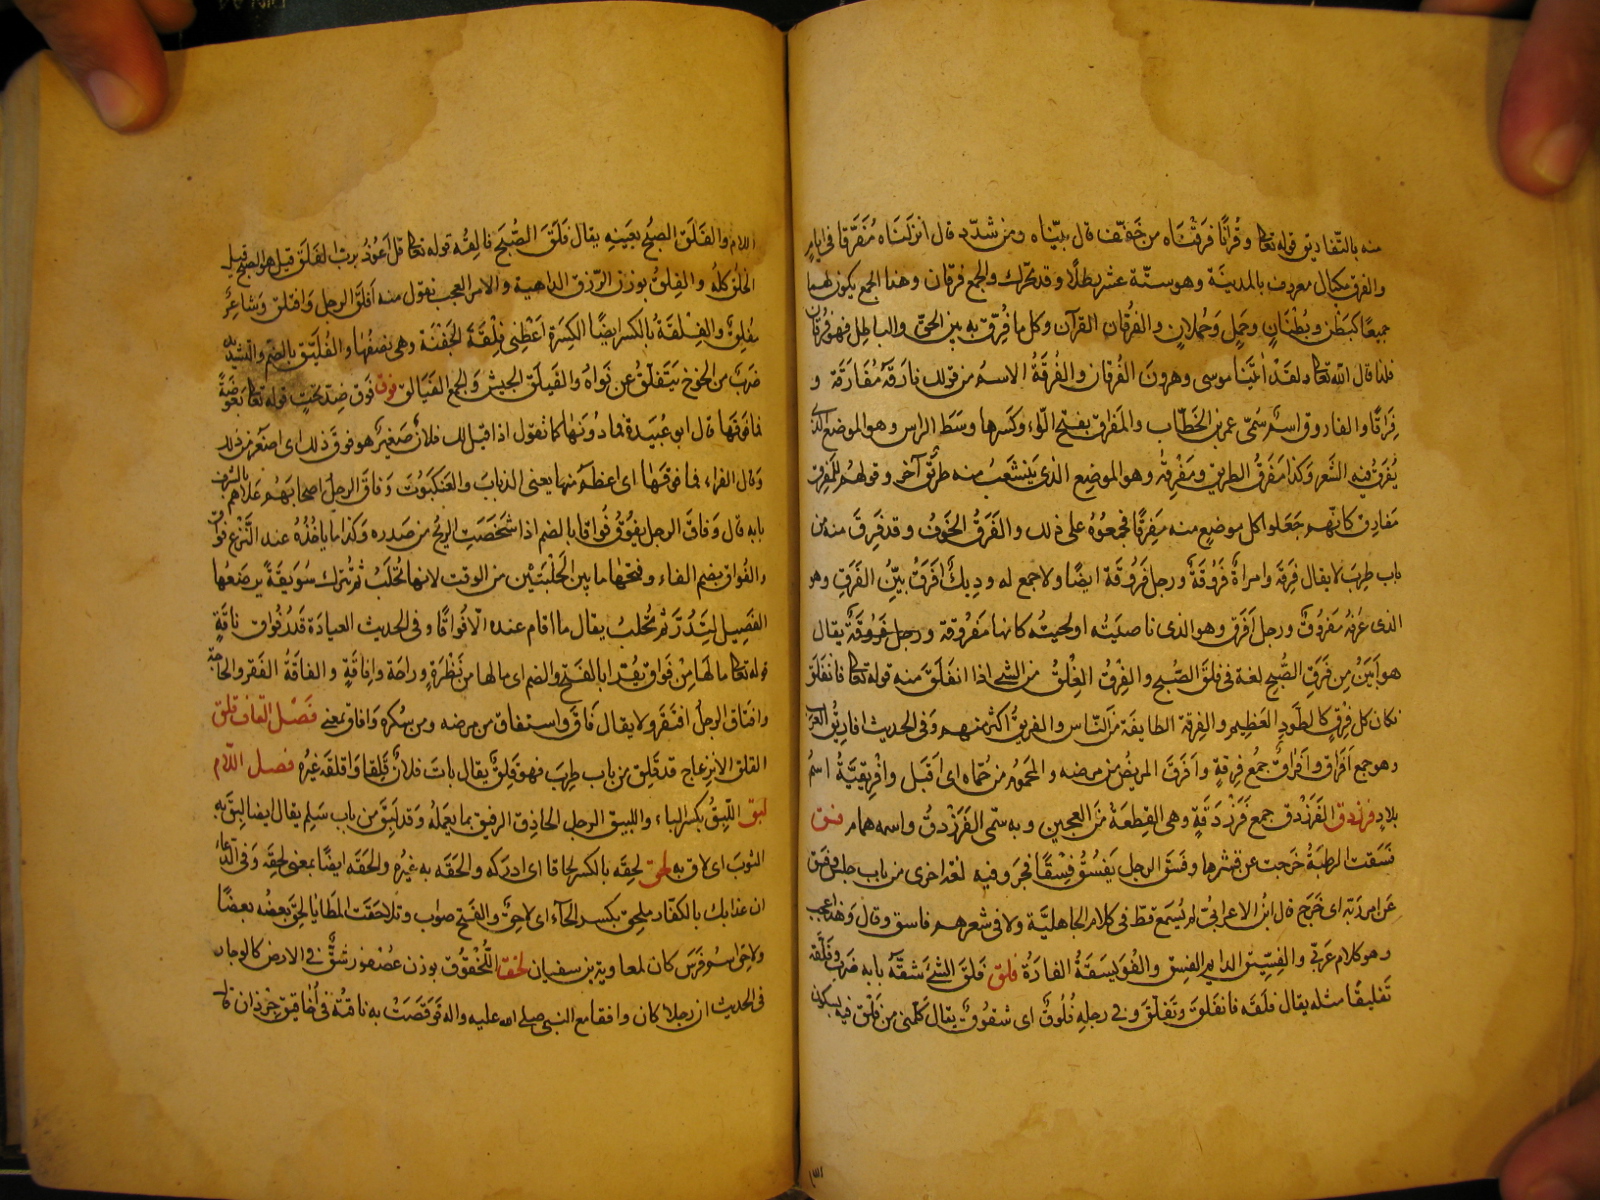 منه بالتفاريق قوله تعالى وقرآنا فرقناه من خفف قال بيناه ومن شدد قال انزلناه مفرقا في ايام
والفرق مكيال معروف بالمدينة وهو ستة عشر رطلا وقد تحرك والجمع فرقان وهذا الجمع يكون لهما
جميعا كبطن وبطنان وحمل وحملان والفرقان القرآن وكل ما فرق به بين الحق والباطل فهو فرقان
فلذا قال الله تعالى ولقد اتينا موسى وهرون الفرقان والفرقة الاسم من قولك فارقه مفارقة و
فراقا والفاروق اسم سمى عمر بن الخطاب والمفرق بفتح الراء وكسرها وسط الراس وهو الموضع الذى
يفرق فيه الشعر وكذا مفرق الطريق ومفرقه وهو الموضع الذى يتشعب منه طريق آخر وقولهم للمفرق
مفارق كانهم جعلوا كل موضع منه مفرقا فجمعوه على ذلك والفرق الخوف وقد فرق منه من
باب طرب لا يقال فرقه وامراة فروقة ورجل فروقة ايضا ولا جمع له وديك افرق بين الفرق وهو
الذى عرفه مفروق ورجل افرق وهو الذى ناصيته او لحيته كانها مفروقة ورجل فروقة يقال
هو ابين من فرق الصبح لغة في فلق الصبح والفرق الفلق من الشئ اذا انفلق منه قوله تعالى فانفلق
فكان كل فرق كالطود العظيم والفرقة الطايفة من الناس والفريق اكثر منهم وفي الحديث افاريق العرب
وهو جمع افراق وافراق جمع فرقة وافرق المريض من مرضه والمحموم من حماه اى اقبل وافريقية اسم
بلاد فرزدق الفرزدق جمع فرزدقة وهى القطعة من العجين وبه سمى الفرزدق واسمه همام فسق
فسقت الرطبة خرجت عن قشرها وفسق الرجل يفسق فسقا فجر وفيه لغة اخرى من باب جلس وفسق
عن امر ربه اى خرج قال ابن الاعرابى لم يسمع قط في كلام الجاهلية ولا في شعرهم فاسق وقال وهذا عجب
وهو كلام عربي والفسيق الدايم الفسق والفويسقة الفارة فلق فلق الشئ شقه بابه ضرب وفلقه
تفليقا مثله يقال فلقه فانفلق وتفلق وفي رجله فلوق اى شقوق يقال كلمنى من فلق فيه بسكون
اللام والفلق الصبح بعينه يقال فلق الصبح فالقه قوله تعالى قل اعوذ برب الفلق قيل هو الصبح قيل
الخلق كله والفلق بوزن الرزق الداهية والامر العجب تقول منه افلق الرجل وافتلق وشاعر
مفلق والفلقة بالكسر ايضا الكسرة اعطنى فلقة الجفنة وهى نصفها والفليق بالضم والتشديد
ضرب من الخوخ يتفلق عن نواه والفيلق الجيش والجمع الفيالق فوق فوق ضد تحت قوله تعالى بعوضة
فما فوقها قال ابو عبيدة فما دونها كما تقول اذا قيل لك فلان صغير هو فوق ذلك اى اصغر من ذلك
وقال الفراء فما فوقها اى اعظم منها يعنى الذباب والعنكبوت وفاق الرجل اصحابه علاهم بالشرف
بابه قال وفاق الرجل يفوق فواقا بالضم اذا شخصت الريح من صدره وكذا ما ياخذه عند النزع فواق
والفواق بضم الفاء وفتحها ما بين الحلبتين من الوقت لانها تحلب ثم تترك سويقة يرضعها
الفصيل لتدر ثم تحلب يقال ما اقام عنده الا فواقا وفي الحديث العيادة قدر فواق ناقة
قوله تعالى ما لها من فواق يقرا بالفتح والضم اى ما لها من نظرة وراحة وافاقة والفاقة الفقر والحاجة
وافتاق الرجل افتقر ولا يقال فاق واستفاق من مرضه ومن سكره وافاق بمعنى فصل القاف قلق
القلق الانزعاج قد قلق من باب طرب فهو قلق يقال بات فلان قلقا واقلقه غيره فصل اللام
لبق اللبق بكسر الباء واللبيق الرجل الحاذق الرفيق بما يعمله وقد لبق من باب سلم يقال ايضا لبق به
الثوب اى لاق به لحق لحقه بالكسر لحاقا اى ادركه والحقه به غيره والحقه ايضا بمعنى لحقه وفي الدعاء
ان عذابك بالكفار ملحق بكسر الحاء اى لاحق والفتح صواب وتلاحقت المطايا لحق بعضه بعضا
ولاحق اسم فرس كان لمعاوية بن سفيان لخق اللخقوق بوزن عصفور شق في الارض كالوجار
في الحديث ان رجلا كان واقفا مع النبى صلى الله عليه واله فوقصت به ناقته في اخاقيق جرذان قا